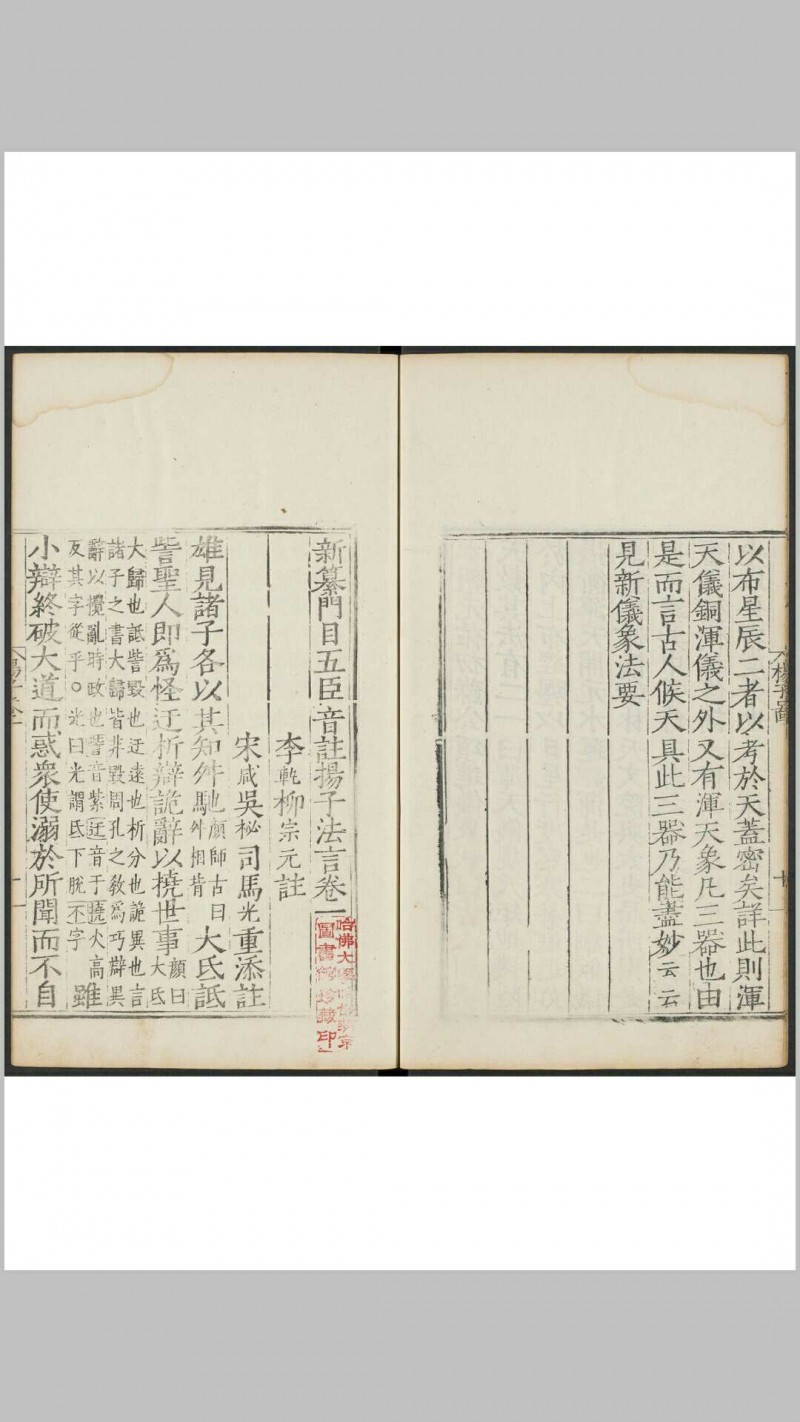 以布星辰二者以考於天蓋密矣詳此則渾
天儀銅渾儀之外又有渾天象凡三器也由
是而言古人候天具此三器乃能盡妙云云
見新儀象法要
新纂門目五臣音註揚子法言卷一
李軌柳宗元註
宋咸吳秘司馬光重添註
雄見諸子各以其知舛馳顏師古曰舛相背大氐詆
訾聖人即爲怪迂析辯詭辭以撓世事顏曰大氐
大歸也詆訾毀也迂遠也析分也詭異也言
諸子之書大歸皆非毀周孔之教爲巧辯異
辭以攪亂時政也訾音紫迂音于撓火高
反其字從乎○光曰光謂氐下脫不字雖
小辯終破大道而惑衆使溺於所聞而不自
圖書
印